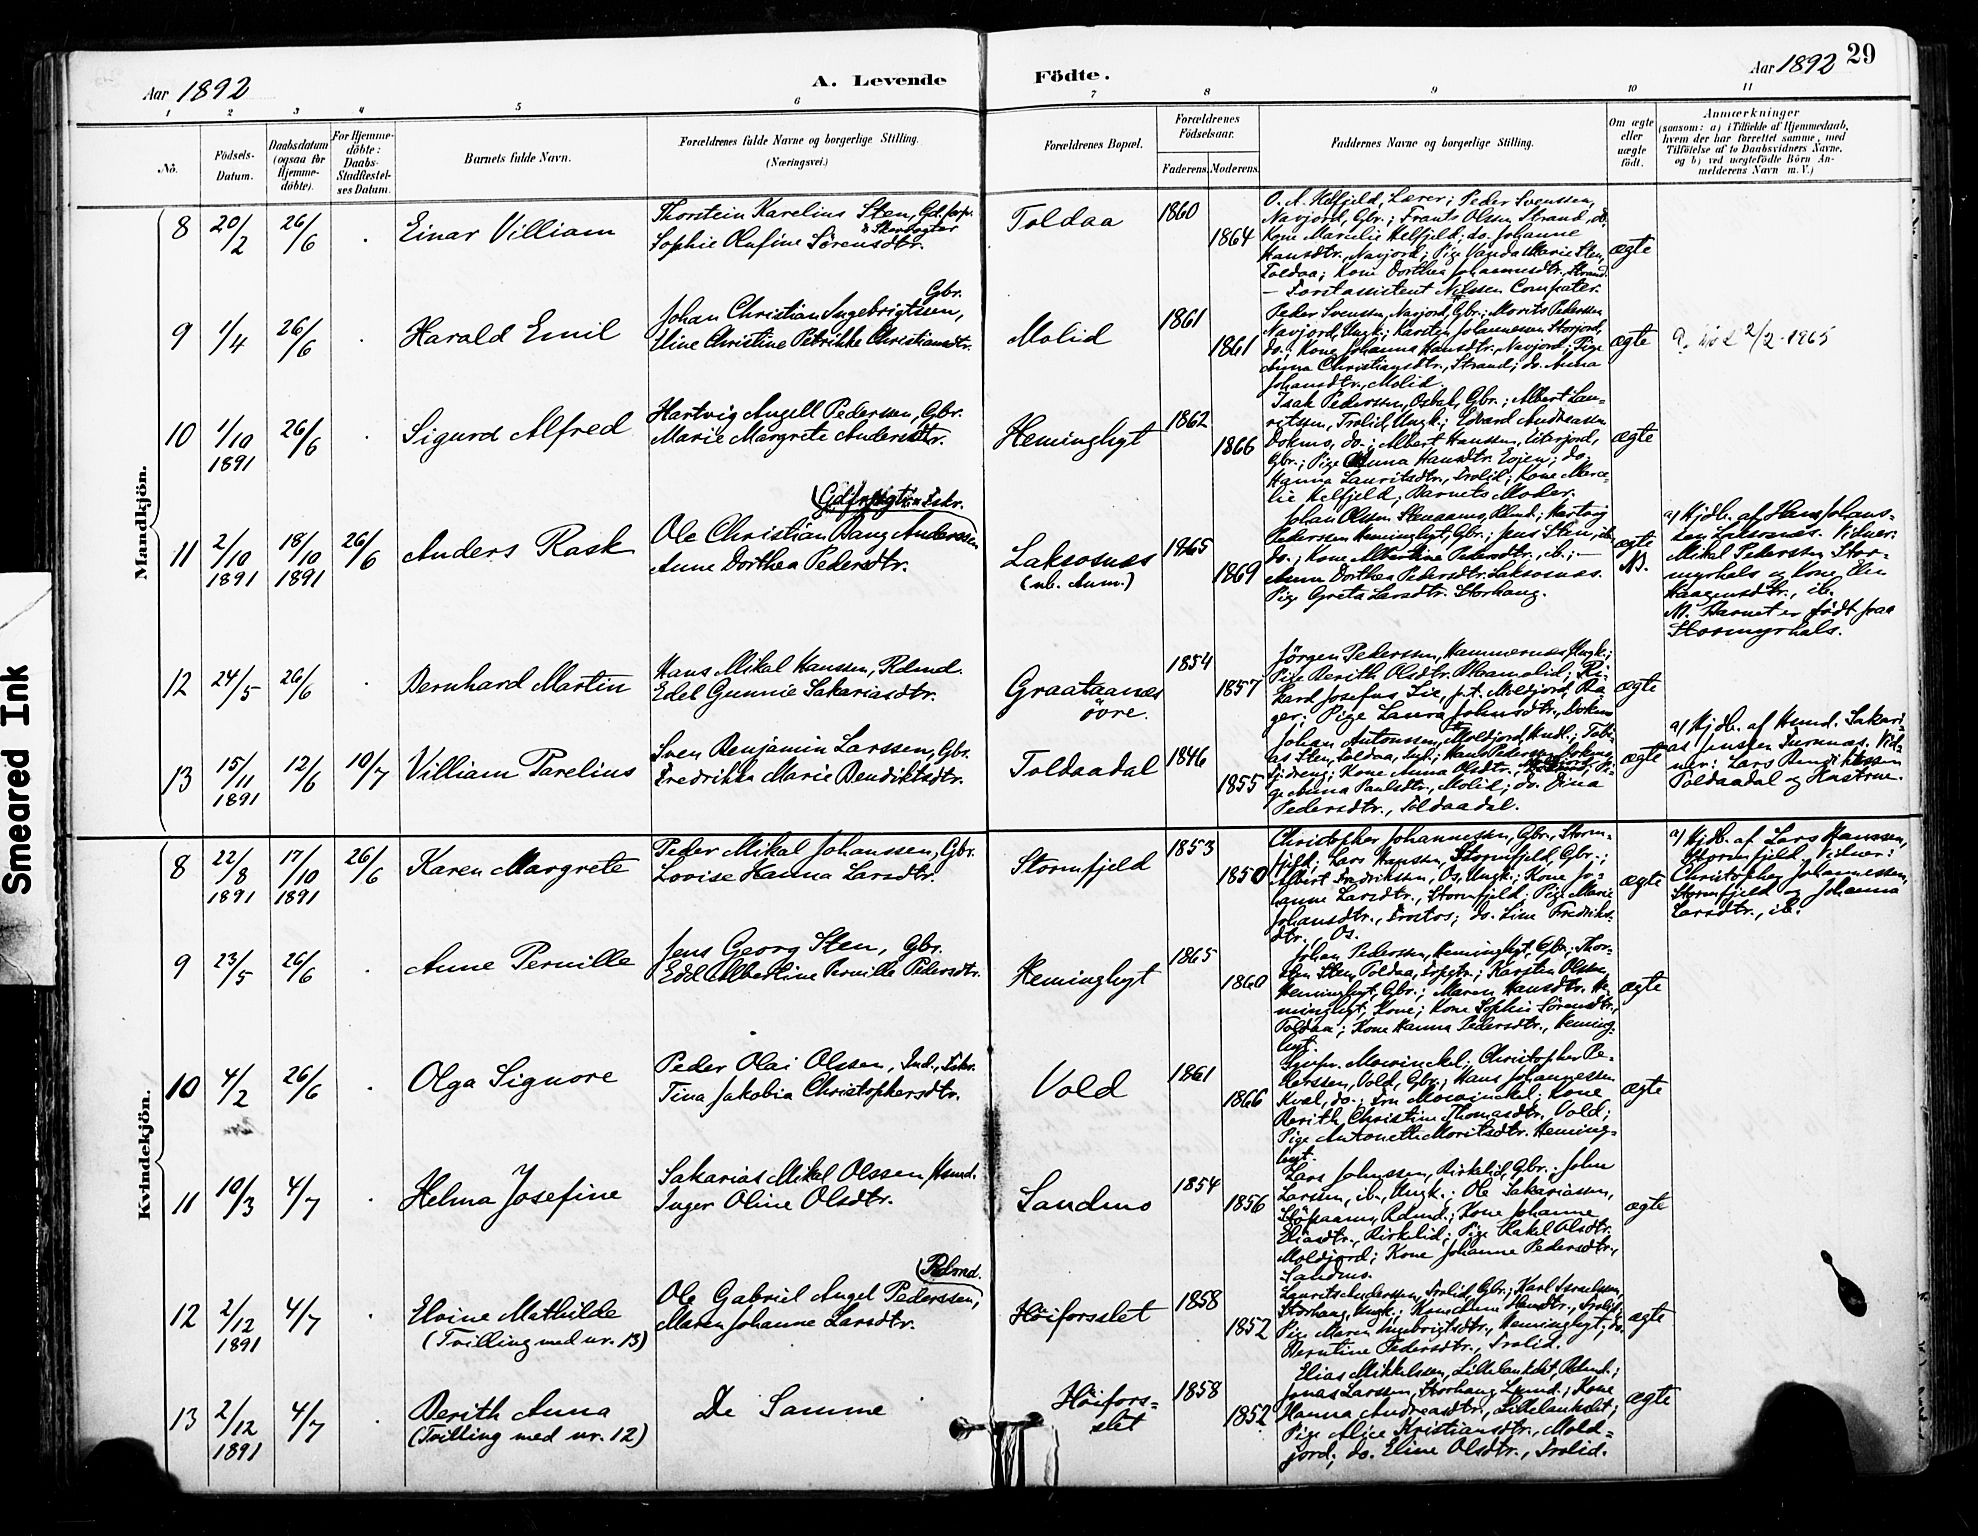 Aar 1892
A. Levende Födte.
Aar 1892 29
1 2 3 4 5 6 7 8 9 10 11
No.
Födsels-
Datum.
Daabsdatum
(ogsaa for
Hjemme-
döbte).
For Hjemme-
döbte:
Daabs-
Stadfæstel-
ses Datum.
Barnets fulde Navn.
Forældrenes fulde Navne og borgerlige Stilling.
(Næringsvei.)
Forældrenes Bopæl.
Forældrenes
Födselsaar.
Faderens. Moderens.
Faddernes Navne og borgerlige Stilling.
Om ægte
eller
uægte
födt.
Anmærkninger
(saasom: a) i Tilfælde af Hjemmedaab,
hvem der har forrettet samme, med
Tilföielse af to Daabsvidners Navne,
og b) ved uægtefödte Börn An-
melderens Navn m. V.)
Mandkjön.
8 20/2 26/6 Einar Villiam
Thorstein Karelius Sten, Gd. forp.
& Skovvogter
Sophie Rufine Sörensdtr.
Toldaa 1860 1864
O. A. Kelfjeld, Lærer; Peder Svenssen,
Navjord, Gbr.; Frants Olssen Strand, do.
Kone Marulie Kelfjeld; do. Johanne
Hansdtr., Navjord; Pige Vanda Marie Sten,
Toldaa; Kone Dorthea Johannesdtr., Strand.
– Forstassistent Nilssen Compater.
ægte
9 1/4 26/6 Harald Emil
Gbr.
Johan Christian Ingebrigtssen,
Eline Christine Petrikke Christiansdtr.
Molid 1861 1861
Peder Svenssen, Navjord, Gbr.; Morits Pederssen
Navjord, Ungk.; Karsten Johannessen Storjord,
do.; Kone Johanna Hansdtr., Navjord; Pige
Anna Christiansdtr., Strand; do. Anna
Johansdtr., Molid.
ægte
2/2 1965
10 1/10 1891 26/6 Sigurd Alfred
Hartvig Angell Pederssen, Gbr.
Marie Margrete Andersdtr.
Heminghyt 1862 1866
Isak Pederssen, Osbal, Gbr.; Albert Lau-
ritssen, Trolid, Ungk.; Edvard Andreassen
Dokmo, do.; Albert Hanssen, Eiterjord,
Gbr.; Pige Anna Hansdtr. Evjen; do.
Hanna Lauritsdtr., Trolid; Kone Maru-
lie Kelfjeld; Barnets Moder.
ægte
11 2/10 1891 18/10 1891 26/6 Anders Rask
Ole Christian Bang Anderssen
Anne Dorthea Pedersdtr.
Laksosnæs
(nb. Anm.)
1865 1869
Johan Olssen Stenaamo, Rdmd.; Hartvig
Pederssen Heminghyt, Gbr.; Jens Sten, ib.
do.; Kone Albertine Pedersdtr., ib.; –
Anne Dorthea Pedersdtr. Laksosnæs.
Pige Greta Larsdtr. Storhaug.
ægte
N.
a) Hjdb. af Hans Johans-
sen Laksosnæs. Vidner:
Mikal Pederssen Stor-
myrhals og Kone Elen
Haagensdtr., ib.
N. Barnet er födt paa
Stormyrhals.
12 24/5 26/6 Bernhard Martin
Hans Mikal Hanssen, Rdmd.
Edel Gunnie Sakariasdtr.
Graataanæs
övre.
1854 1857
Jörgen Pederssen, Hammernæs, Ungk.;
Pige Berith Olsdtr.
ger; Pige Laura Johnsdtr., Dokmo
ægte
13 15/11 1891 12/6 10/7 Villiam Parelius
Sven Benjamin Larssen, Gbr.
Fredrikke Marie Bendiktsdtr.
Toldaadal 1846 1855
Johan Antonssen, Moldjord,
as Sten, Toldaa,
Kone Anna Olsdtr.,
ge Anna Paulsdtr., Molid; do. Dina
Pedersdtr., Toldaadal.
ægte
a) Hjdb. af Hsmd. Sakari-
as Jenssen Furmoos. Vid-
ner: Lars Bendikssen
Toldaadal og Hustrue.
Kvindekjön.
8 22/8 1891 17/10 1891 26/6 Karen Margrete
Peder Mikal Johanssen, Gbr.
Lovise Hanna Larsdtr.
Stormfjeld 1853 1850
Christopher Johannessen, Gbr., Storm-
fjeld; Lars Hanssen, Stormfjeld, Gbr.;
Albert Fredrikssen, Os, Ungk.; Kone Jo-
hanne Larsdtr., Stormfjeld; Pige Marie
Johansdtr., Trostos; do. Line Fredriks-
dtr., Os.
ægte
a) Hjdb. af Lars Hanssen,
Stormfjeld. Vidner:
Christopher Johannessen,
Stormfjeld og Johanna
Larsdtr., ib.
9 23/5 26/6 Anne Pernille
Jens Georg Sten, Gbr.
Edel Albertine Pernille Pedersdtr.
Heminghyt 1865 1860
Johan Pederssen, Heminghyt, Gbr.; Thor-
sten Sten Toldaa, Forpgtr.; Karsten Olssen,
Heminghyt, Gbr.; Maren Hansdtr. He-
minghyt, Kone; Kone Sophie Sörensdtr.,
Toldaa; Kone Hanna Pedersdtr., Heming-
hyt.
ægte
10 4/2 26/6 Olga Signore
Peder Olai Olssen, Ind., Fskr.
Tina Jakobia Christophersdtr.
Vold 1861 1866
Mowinckel; Christopher Pe-
derssen, Vold, Gbr.; Hans Johannessen
Kval, do.; Fru Mowinckel; Kone
Berith Christine Thomasdtr., Vold;
Pige Antonette Moritsdtr. Heming-
hyt.
ægte
11 10/3 4/7 Helma Josefine
Sakarias Mikal Olssen Hsmd.
Inger Oline Olsdtr.
Sandmo 1854 1856
Lars Johnssen, Birkelid, Gbr.; John
Larssen, ib., Ungk.; Ole Sakariassen,
Rdmd.; Kone Johanne
Eliasdtr., Birkelid; Pige Rakel Olsdtr.
Moldjord; Kone Johanne Pedersdtr.,
Sandmo.
ægte
12 2/12 1891 4/7 Elvine Mathilde
(Tvilling med nr. 13)
Rdmd.
Ole Gabriel Angel Pederssen,
Maren Johanne Larsdtr.
Höiforsslet 1858 1852
Laurits Anderssen, Trolid, Gbr.; Karl Israelssen,
Storhaug, Ungk.; Kone Anne Hansdtr., Trolid;
Pige Maren Ingebrigtsdtr., Heminghyt; do.
Berntine Pedersdtr., Trolid.
ægte
13 2/12 1891 4/7 Berith Anna
(Tvilling med nr. 12)
De Samme
Höifors-
slet
1858 1852
Elias Mikkelssen, Lillelankslet, Rdmd.;
Jonas Larssen, Storhaug,
Kone
Hanna Andreasdtr., Lillelankslet;
Pige Alice Kristiansdtr., Mold-
jord; do. Eline Olsdtr., Trolid.
ægte
Smeared Ink